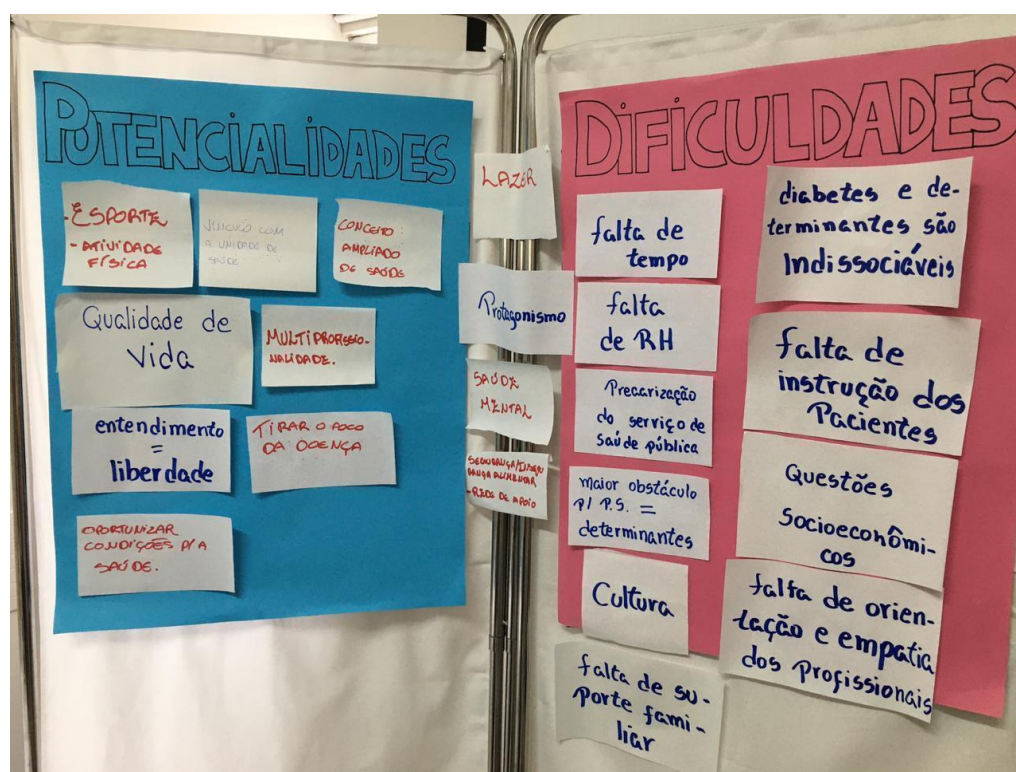 POTENCIALIDADES
- ESPORTE
- ATIVIDADE
FÍSICA
VÍNCULO COM
A UNIDADE DE
SAÚDE
CONCEITO
AMPLIADO
DE SAÚDE
Qualidade de
Vida
MULTIPROFISSIO-
NALIDADE.
entendimento
=
liberdade
TIRAR O FOCO
DA DOENÇA
OPORTUNIZAR
CONDIÇÕES P/ A
SAÚDE.
LAZER
Protagonismo
SAÚDE
MENTAL
SEGURANÇA/INSEGU
RANÇA ALIMENTAR
- REDE DE APOIO
DIFICULDADES
falta de
tempo
falta
de RH
Precarização
do serviço de
saúde pública
maior obstáculo
p/ P.S. =
determinantes
Cultura
falta de su-
porte fami-
liar
diabetes e de-
terminantes são
Indissociáveis
falta de
instrução dos
Pacientes
Questões
Socioeconômi-
cos
falta de orien-
tação e empatia
dos Profissionais